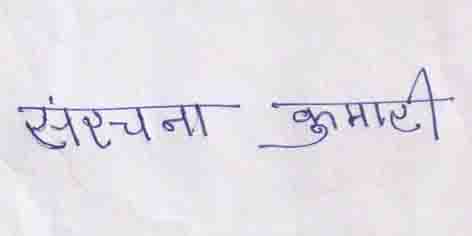 संरचना कुमारी